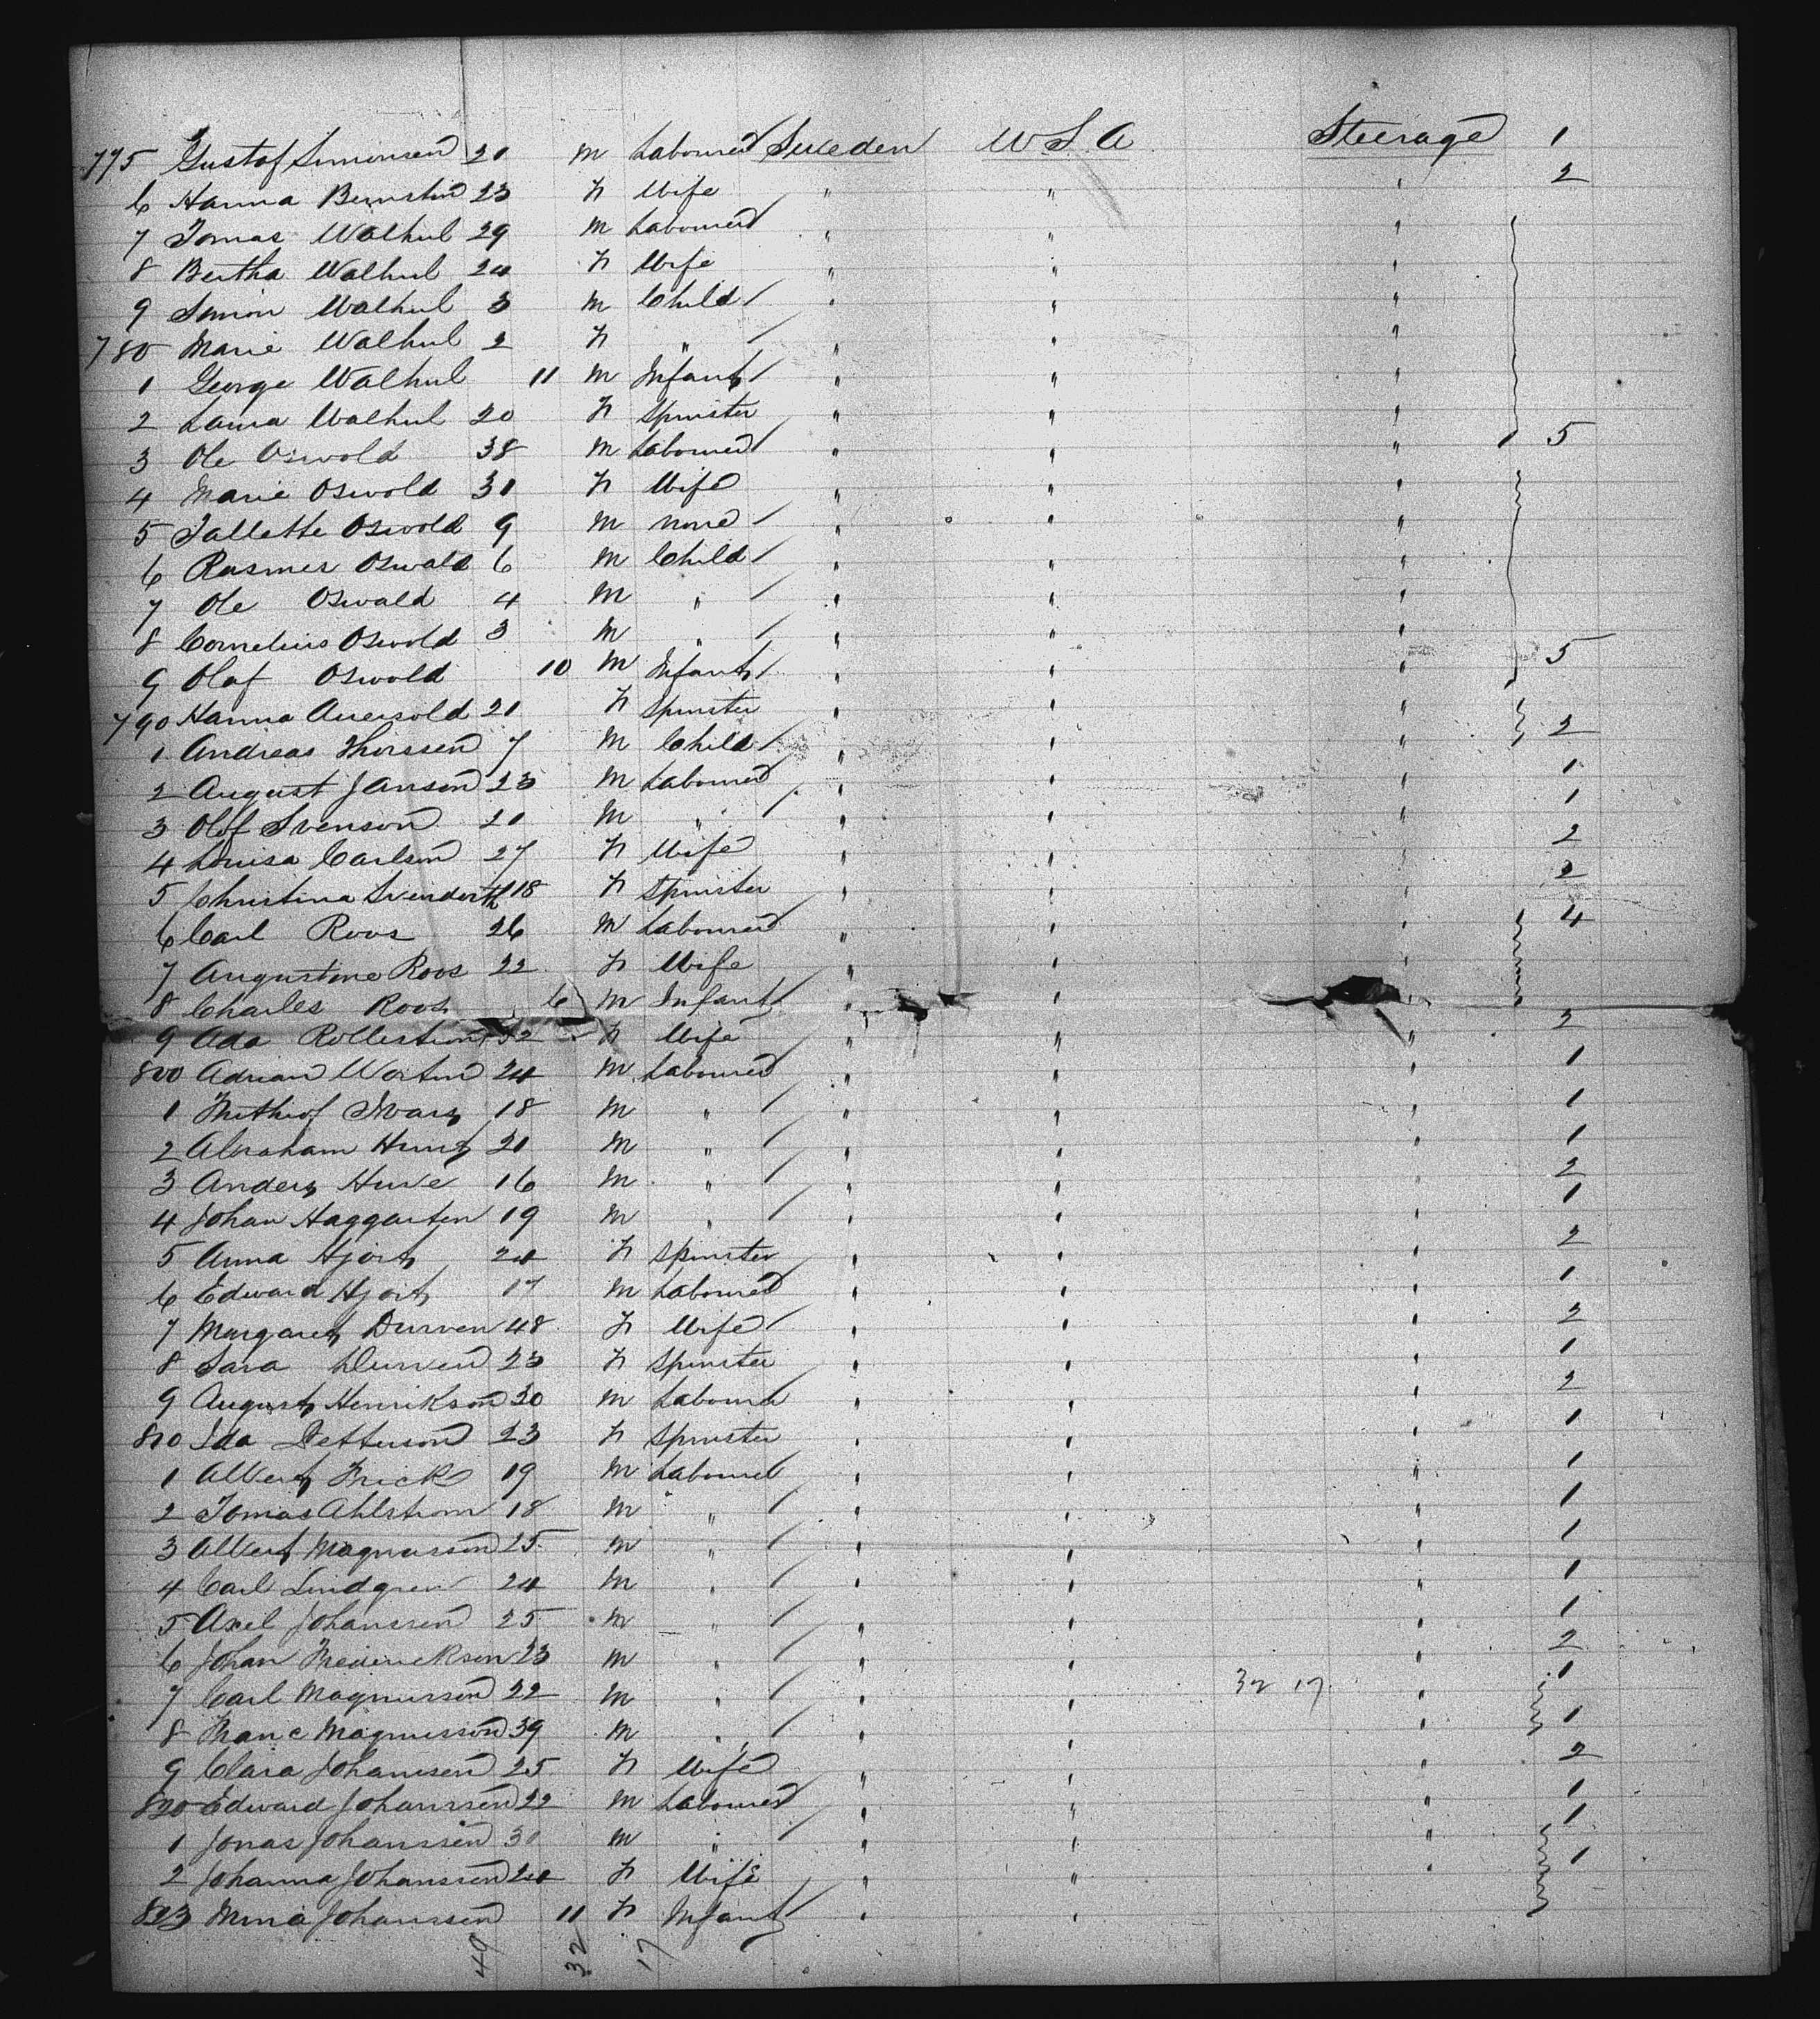 775 Gustof Simonsen 20 m Labourer Sweden USA Steerage 1
6 Hanna Bernstin 23 F Wife " " " 2
7 Tomas Walhul 29 m Labourer " " "
8 Bertha Walhul 24 F Wife " " "
9 Simon Walhul 3 m Child " " "
780 Marie Walhul 2 F " " " "
1 George Walhul 11 m Infant " " "
2 Laura Walhul 20 F Spinster " " "
3 Ole Oswold 38 m Labourer " " " 5
4 Marie Oswold 30 F Wife " " "
5 Tallette Oswold 9 m none " " "
6 Rasmus Oswald 6 m Child " " "
7 Ole Oswald 4 m " " " "
8 Cornelius Oswold 3 m " " " "
9 Olaf Oswold 10 m Infant " " " 5
790 Hanna 21 F Spinster " " "
1 Andreas Thorssen 7 m Child " " " 2
2 August Janson 23 m Labourer " " " 1
3 Olof Svenson 20 m " " " " 1
4 Louisa Carlson 27 F Wife " " " 2
5 Christina 18 F Spinster " " " 2
6 Carl Roos 26 m Labourer " " " 4
7 Augustine Roos 22 F Wife " " "
8 Charles Roos 6 m Infant " " "
9 Ada 32 F Wife " " " 2
800 Adrian 24 m Labourer " " " 1
1 18 m " " " " 1
2 Abraham 20 m " " " " 1
3 Anders 16 m " " " " 2
4 Johan Haggarten 19 m " " " " 1
5 Anna Hjort 24 F Spinster " " " 2
6 Edward Hjort 17 m Labourer " " " 1
7 Margaret Durven 48 F Wife " " " 2
8 Sara Durven 23 F Spinster " " " 1
9 August Henrikson 30 m Labourer " " " 2
810 Ida Petterson 23 F Spinster " " " 1
1 Albert Frick 19 m Labourer " " " 1
2 Tomas Ahlstrom 18 m " " " " 1
3 Albert Magnusson 25 m " " " " 1
4 Carl Lindgren 24 m " " " " 1
5 Axel Johanssen 25 m " " " " 1
6 Johan Frederickson 23 m " " " " 2
7 Carl Magnusson 22 m " " " 32 17 " 1
8 Franc Magnusson 39 m " " " " 1
9 Clara Johansen 25 F Wife " " " 2
820 Edward Johanssen 22 m Labourer " " " 1
1 Jonas Johanssen 30 m " " " " 1
2 Johanna Johanssen 24 F Wife " " " 1
823 Mina Johanssen 11 F Infant " "
49 32 17